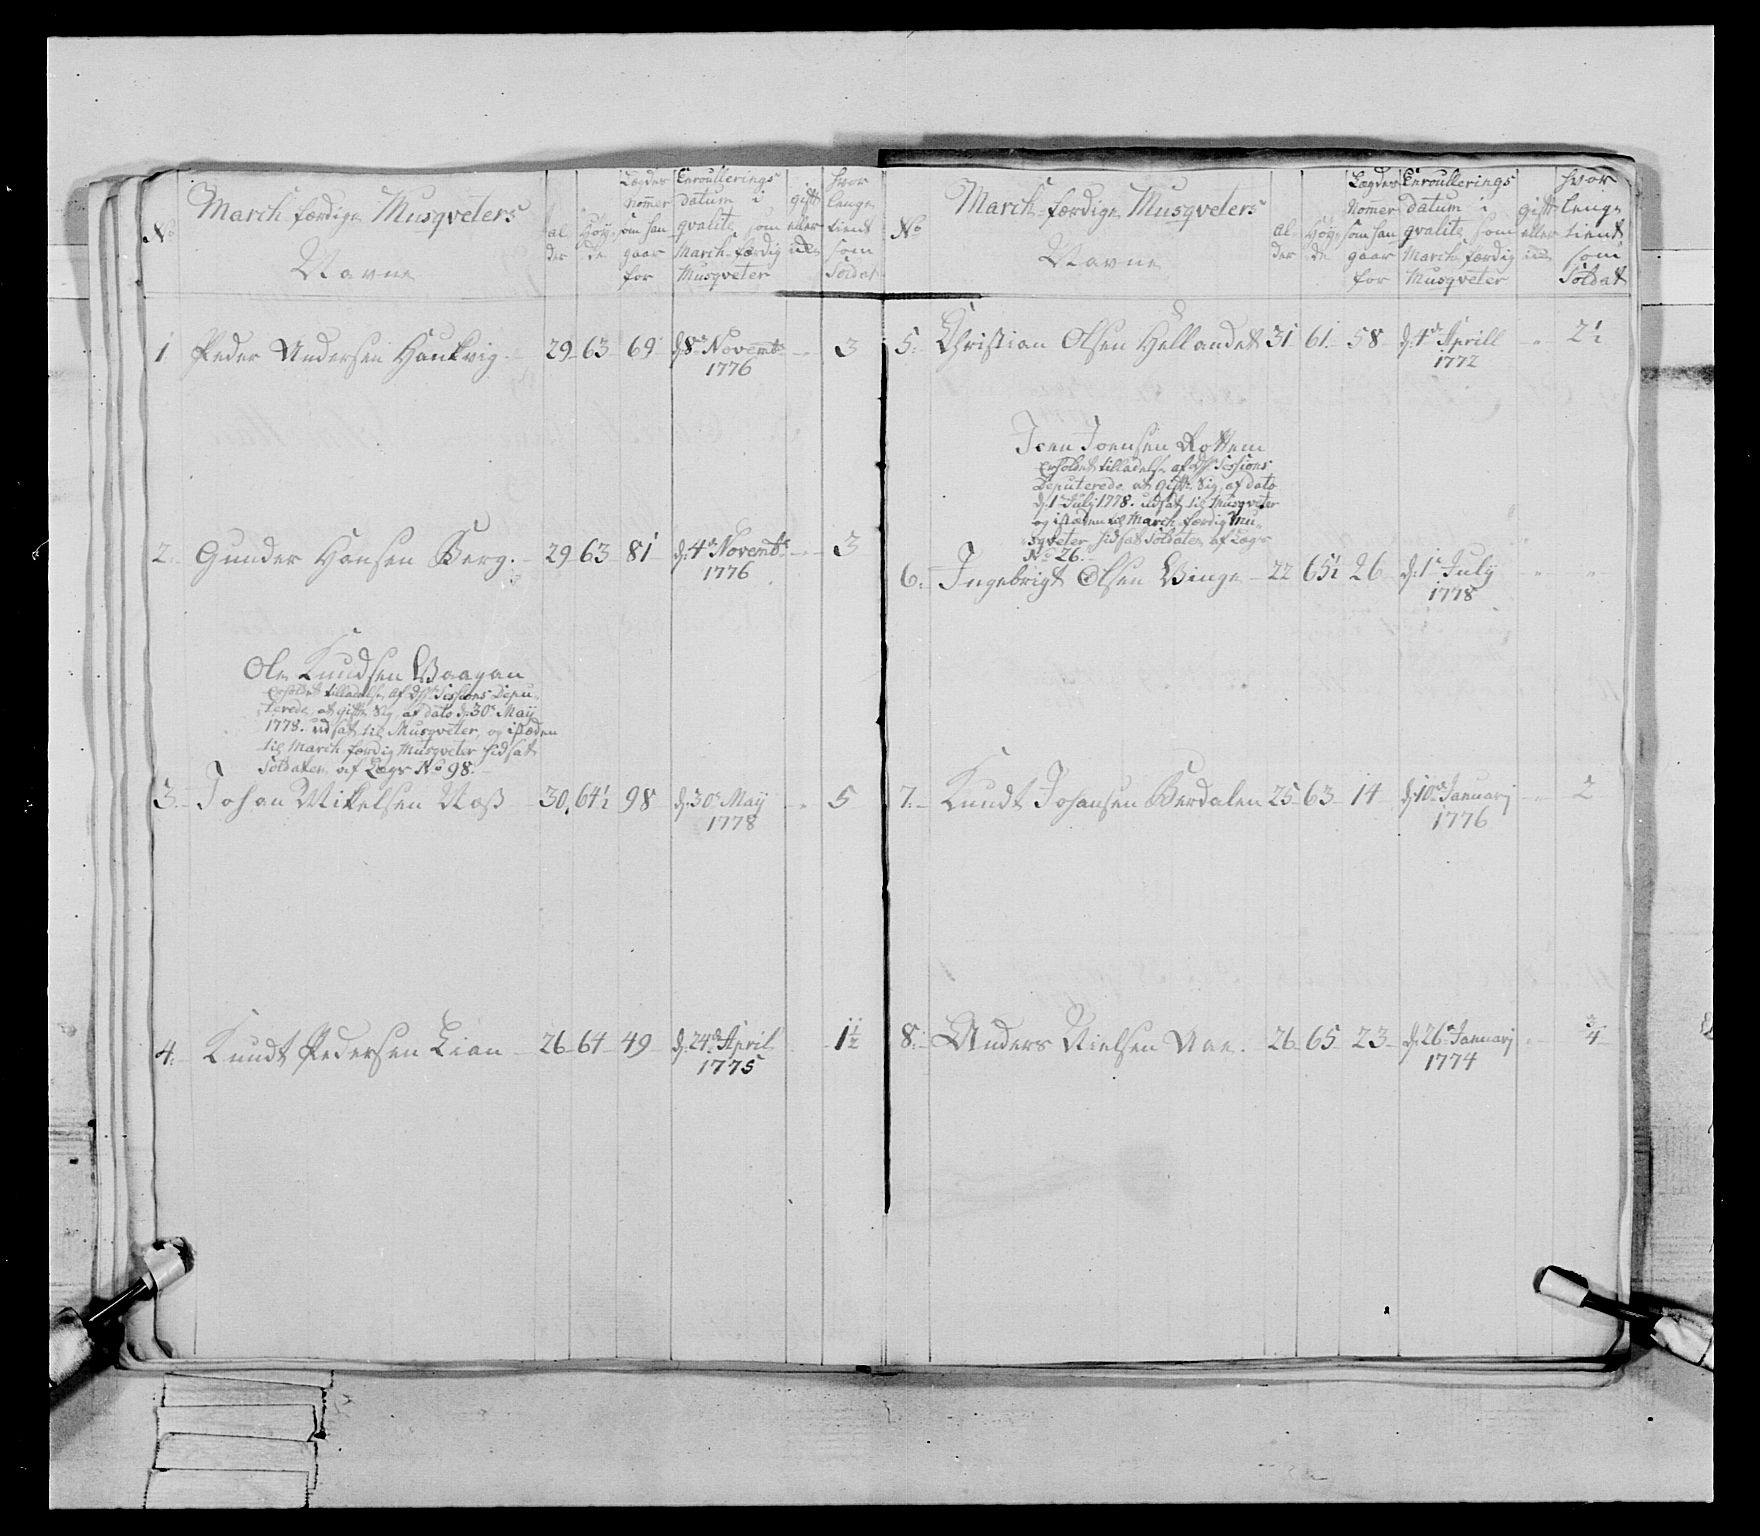 No
March færdige Musqveters
Navne
al
der
Høy
de
Lægdes
nomer
som han
gaar
for
Enroullerings
datum i
qvalite som
March færdig
Musqveter
gift
eller
hvor
lenge
tient
som
Soldat
1 Peder Andersen Haukvig 29 63 69 d: 8de Novembr 3
1776
2. Gunder Hansen Berg. 29 63 81 d: 4de Novembr 3
1776
Ole Knudsen Vaagan
Erholdet tilladelse af Dhr Sessions Depu-
terede, at gifte sig, af dato d: 30te May
1778. udsat til Musqveter, og isteden
til March færdig Musqveter Indsat
Soldaten af Lægs No 98.
3. Johan Mikelsen Næss 30. 64½ 98 d: 30te May 5
1778
4. Knudt Pedersen Lian 26 64 49 d: 24de April 1½
1775
No
March færdige Musqveters
Navne
al
der
Høy
de
Lægdes
Nomer
som han
gaar
for
Enroullerings
datum i
qvalite som
March færdig
Musqveter
gift
eller
hvor
lenge
tient
som
Soldat
5. Christian Olsen Hellandet 31 61 58 d: 4de Aprill 2½
1772
Joen Joensen Rottem
Erholdet tilladelse af Dhr Sessions
Deputerede at gifte sig, af dato
d: 1te July 1778. udsat til Musqveter
og isteden til March færdig Mu-
sqveter Indsat Soldaten af Lægs
No 26.
6. Ingebrigt Olsen Vinge 22 65½ 26 d: 1te July
1778
7. Knudt Johansen Berdalen 25 63 14 d: 10de Januarj 2
1776
8. Anders Nielsen Aae. 26 65 23 d: 26de Januarj ¾
1774